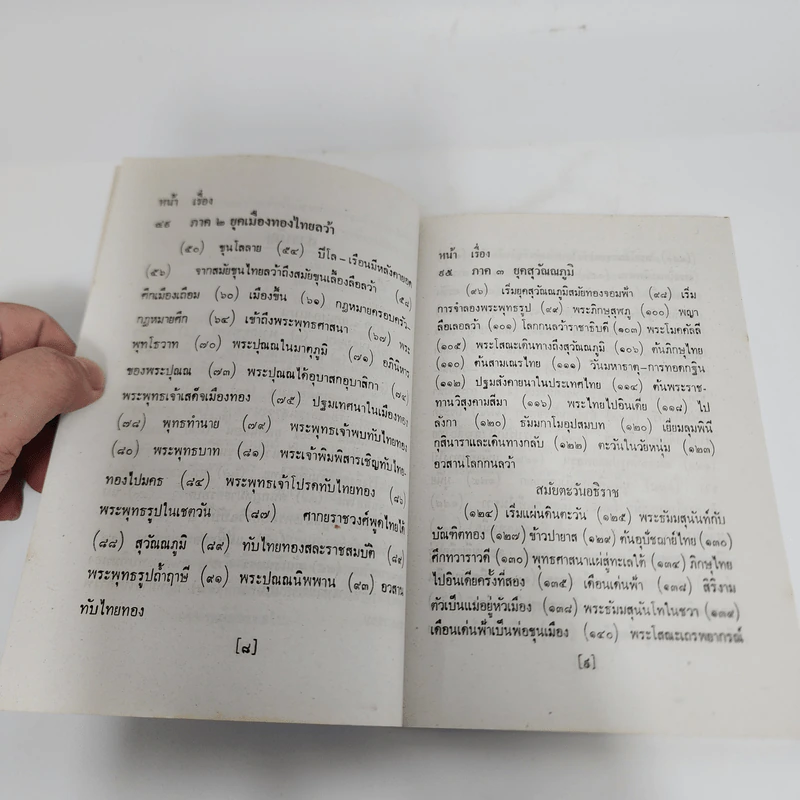 หน้า เรื่อง
๔๙ ภาค ๒ ยุคเมืองทองไทยลว้า
(๕๐) ขุนโลลาย (๕๔) บีโล – เรือนมีหลังคายอด
(๕๖) จากสมัยขุนไทยลว้าถึงสมัยขุนเลื่องลือลว้า (๕๘)
ศึกเมืองเถือม (๖๐) เมืองขึ้น (๖๑) กฎหมายครอบครัว–
กฎหมายศึก (๖๔) เข้าถึงพระพุทธศาสนา (๖๗) พระ
พุทโธวาท (๗๐) พระปุณณในมาตุภูมิ (๗๑) อภินิหาร
ของพระปุณณ (๗๓) พระปุณณได้อุบาสกอุบาสิกา (๗๔)
พระพุทธเจ้าเสด็จเมืองทอง (๗๕) ปฐมเทศนาในเมืองทอง
(๗๘) พุทธทำนาย (๗๙) พระพุทธเจ้าพบทับไทยทอง
(๘๐) พระพุทธบาท (๘๑) พระเจ้าพิมพิสารเชิญทับไทย-
ทองไปมคธ (๘๔) พระพุทธเจ้าโปรดทับไทยทอง (๘๖)
พระพุทธรูปในเชตวัน (๘๗) ศากยราชวงศ์พูดไทยได้
(๘๘) สุวัณณภูมิ (๘๙) ทับไทยทองสละราชสมบัติ (๘๙)
พระพุทธรูปถ้ำฤาษี (๙๑) พระปุณณนิพพาน (๙๓) อวสาน
ทับไทยทอง
[๘]
หน้า เรื่อง
๙๕ ภาค ๓ ยุคสุวัณณภูมิ
(๙๖) เริ่มยุคสุวัณณภูมิสมัยทองจอมฟ้า (๙๘) เริ่ม
การจำลองพระพุทธรูป (๙๙) พระภิกษุสุพภู (๑๐๐) พญา
ลือเลอลว้า (๑๐๑) โลกกนลว้าราชาธิบดี (๑๐๓) พระโมคคัลลี
(๑๐๕) พระโสณะเดินทางถึงสุวัณณภูมิ (๑๐๖) ต้นภิกษุไทย
(๑๑๐) ต้นสามเณรไทย (๑๑๑) วันมหาธาตุ–การทอดกฐิน
(๑๑๒) ปฐมสังคายนาในประเทศไทย (๑๑๔) ต้นพระราช-
ทานวิสุงคามสีมา (๑๑๖) พระไทยไปอินเดีย (๑๑๘) ไป
ลังกา (๑๒๐) ธัมมกาโมอุปสมบท (๑๒๐) เยี่ยมลุมพินี
กุสินาราและเดินทางกลับ (๑๒๒) ตะวันในวัยหนุ่ม (๑๒๓)
อวสานโลกกนลว้า
สมัยตะวันอธิราช
(๑๒๔) เริ่มแผ่นดินตะวัน (๑๒๕) พระธัมมสุนันท์กับ
บัณฑิตทอง (๑๒๗) ข้าวปายาส (๑๒๙) ต้นอุปัชฌาย์ไทย (๑๓๐)
ศึกทวาราวดี (๑๓๐) พุทธศาสนาแผ่สู่ทะเลใต้ (๑๓๔) ภิกษุไทย
ไปอินเดียครั้งที่สอง (๑๓๕) เดือนเด่นฟ้า (๑๓๘) สิริงาม
ตัวเป็นแม่อยู่หัวเมือง (๑๓๘) พระธัมมสุนันโทในชวา (๑๓๙)
เดือนเด่นฟ้าเป็นพ่อขุนเมือง (๑๔๐) พระโสณะเถรพยากรณ์
[๙]